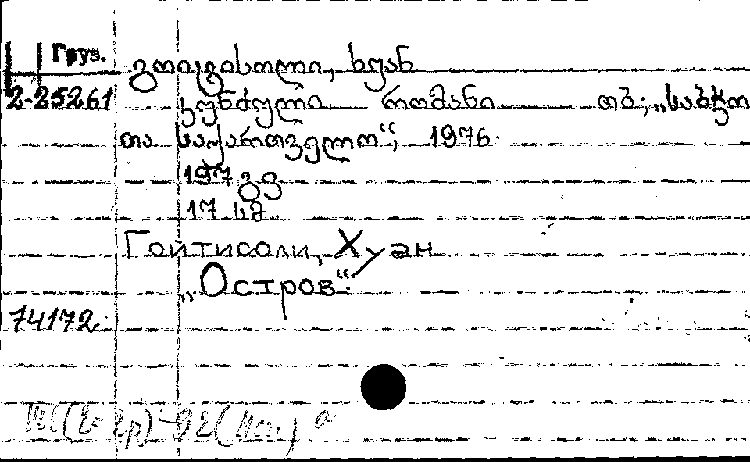 Груз. გოიტისოლი, ხუან
2-25261 კუნძული რომანი თბ; „საბჭო
თა საქართველო“, 1976
197 გვ
17 სმ
Гойтисоли, Хуан
„Остров“.
74172.